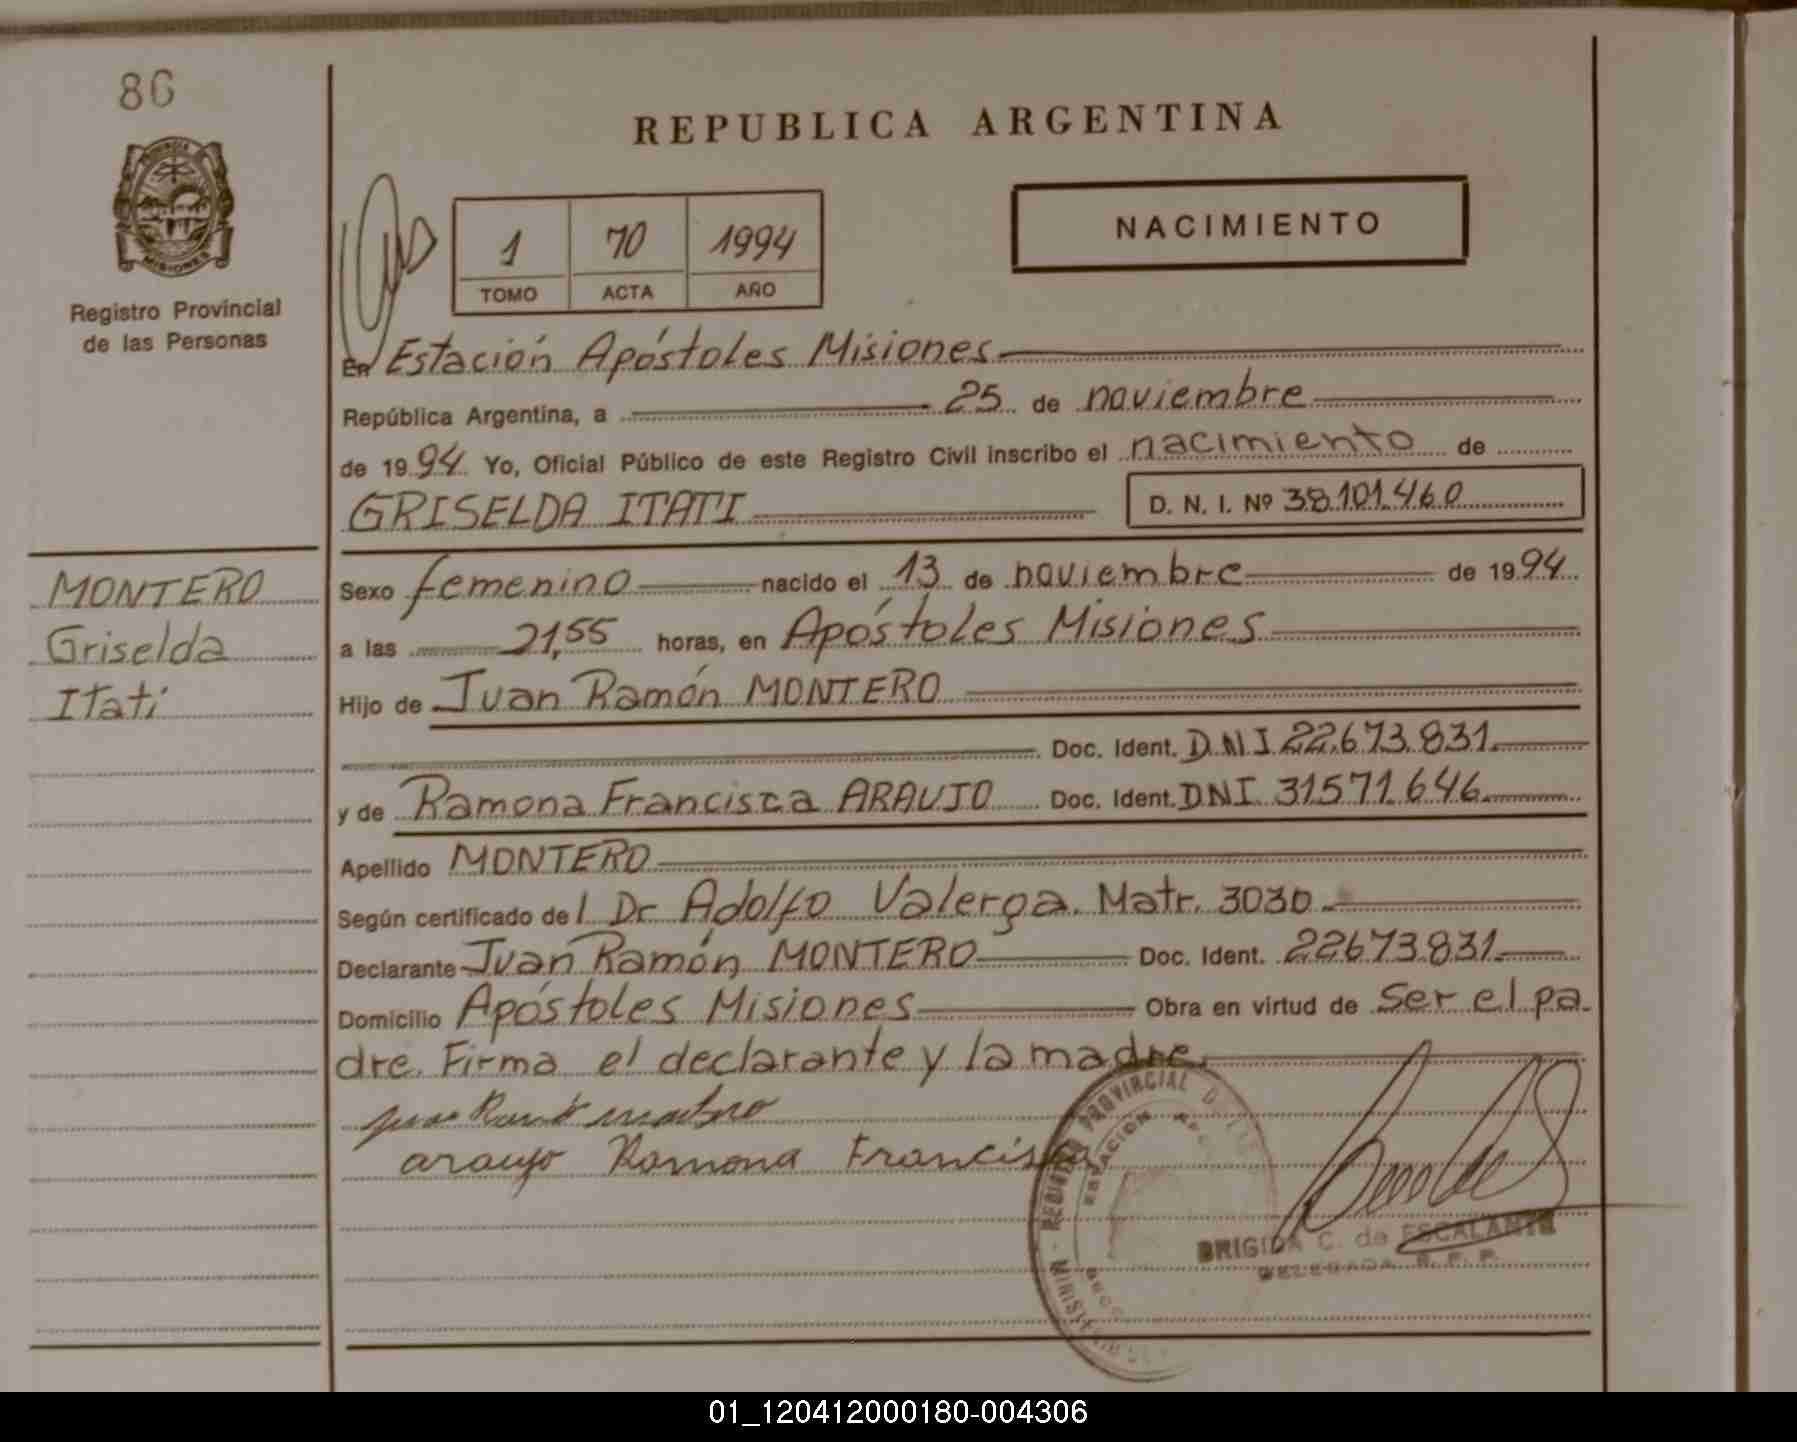 86
REPUBLICA ARGENTINA
PROVINCIA
MISIONES
Registro Provincial
de las Personas
1 70 1994
TOMO ACTA AÑO
NACIMIENTO
En Estación Apóstoles Misiones
República Argentina, a 25 de noviembre
de 1994 Yo, Oficial Público de este Registro Civil inscribo el nacimiento de
GRISELDA ITATI D. N. I. Nº 38.101.460
MONTERO
Griselda
Itati
Sexo femenino nacido el 13 de noviembre de 1994
a las 21,55 horas, en Apóstoles Misiones
Hijo de Juan Ramón MONTERO
Doc. Ident. DNI 22.673.831
y de Ramona Francisca ARAUJO Doc. Ident. DNI 31571.646
Apellido MONTERO
Según certificado del Dr Adolfo Valerga. Matr. 3030
Declarante Juan Ramón MONTERO Doc. Ident. 22673.831
Domicilio Apóstoles Misiones Obra en virtud de ser el pa
dre. Firma el declarante y la madre.
Juan Ramón montero
araujo Ramona Francisca
REGISTRO PROVINCIAL
ESTACION
BRIGIDA C. de ESCALANTE
DELEGADA R. P. P.
01_120412000180-004306